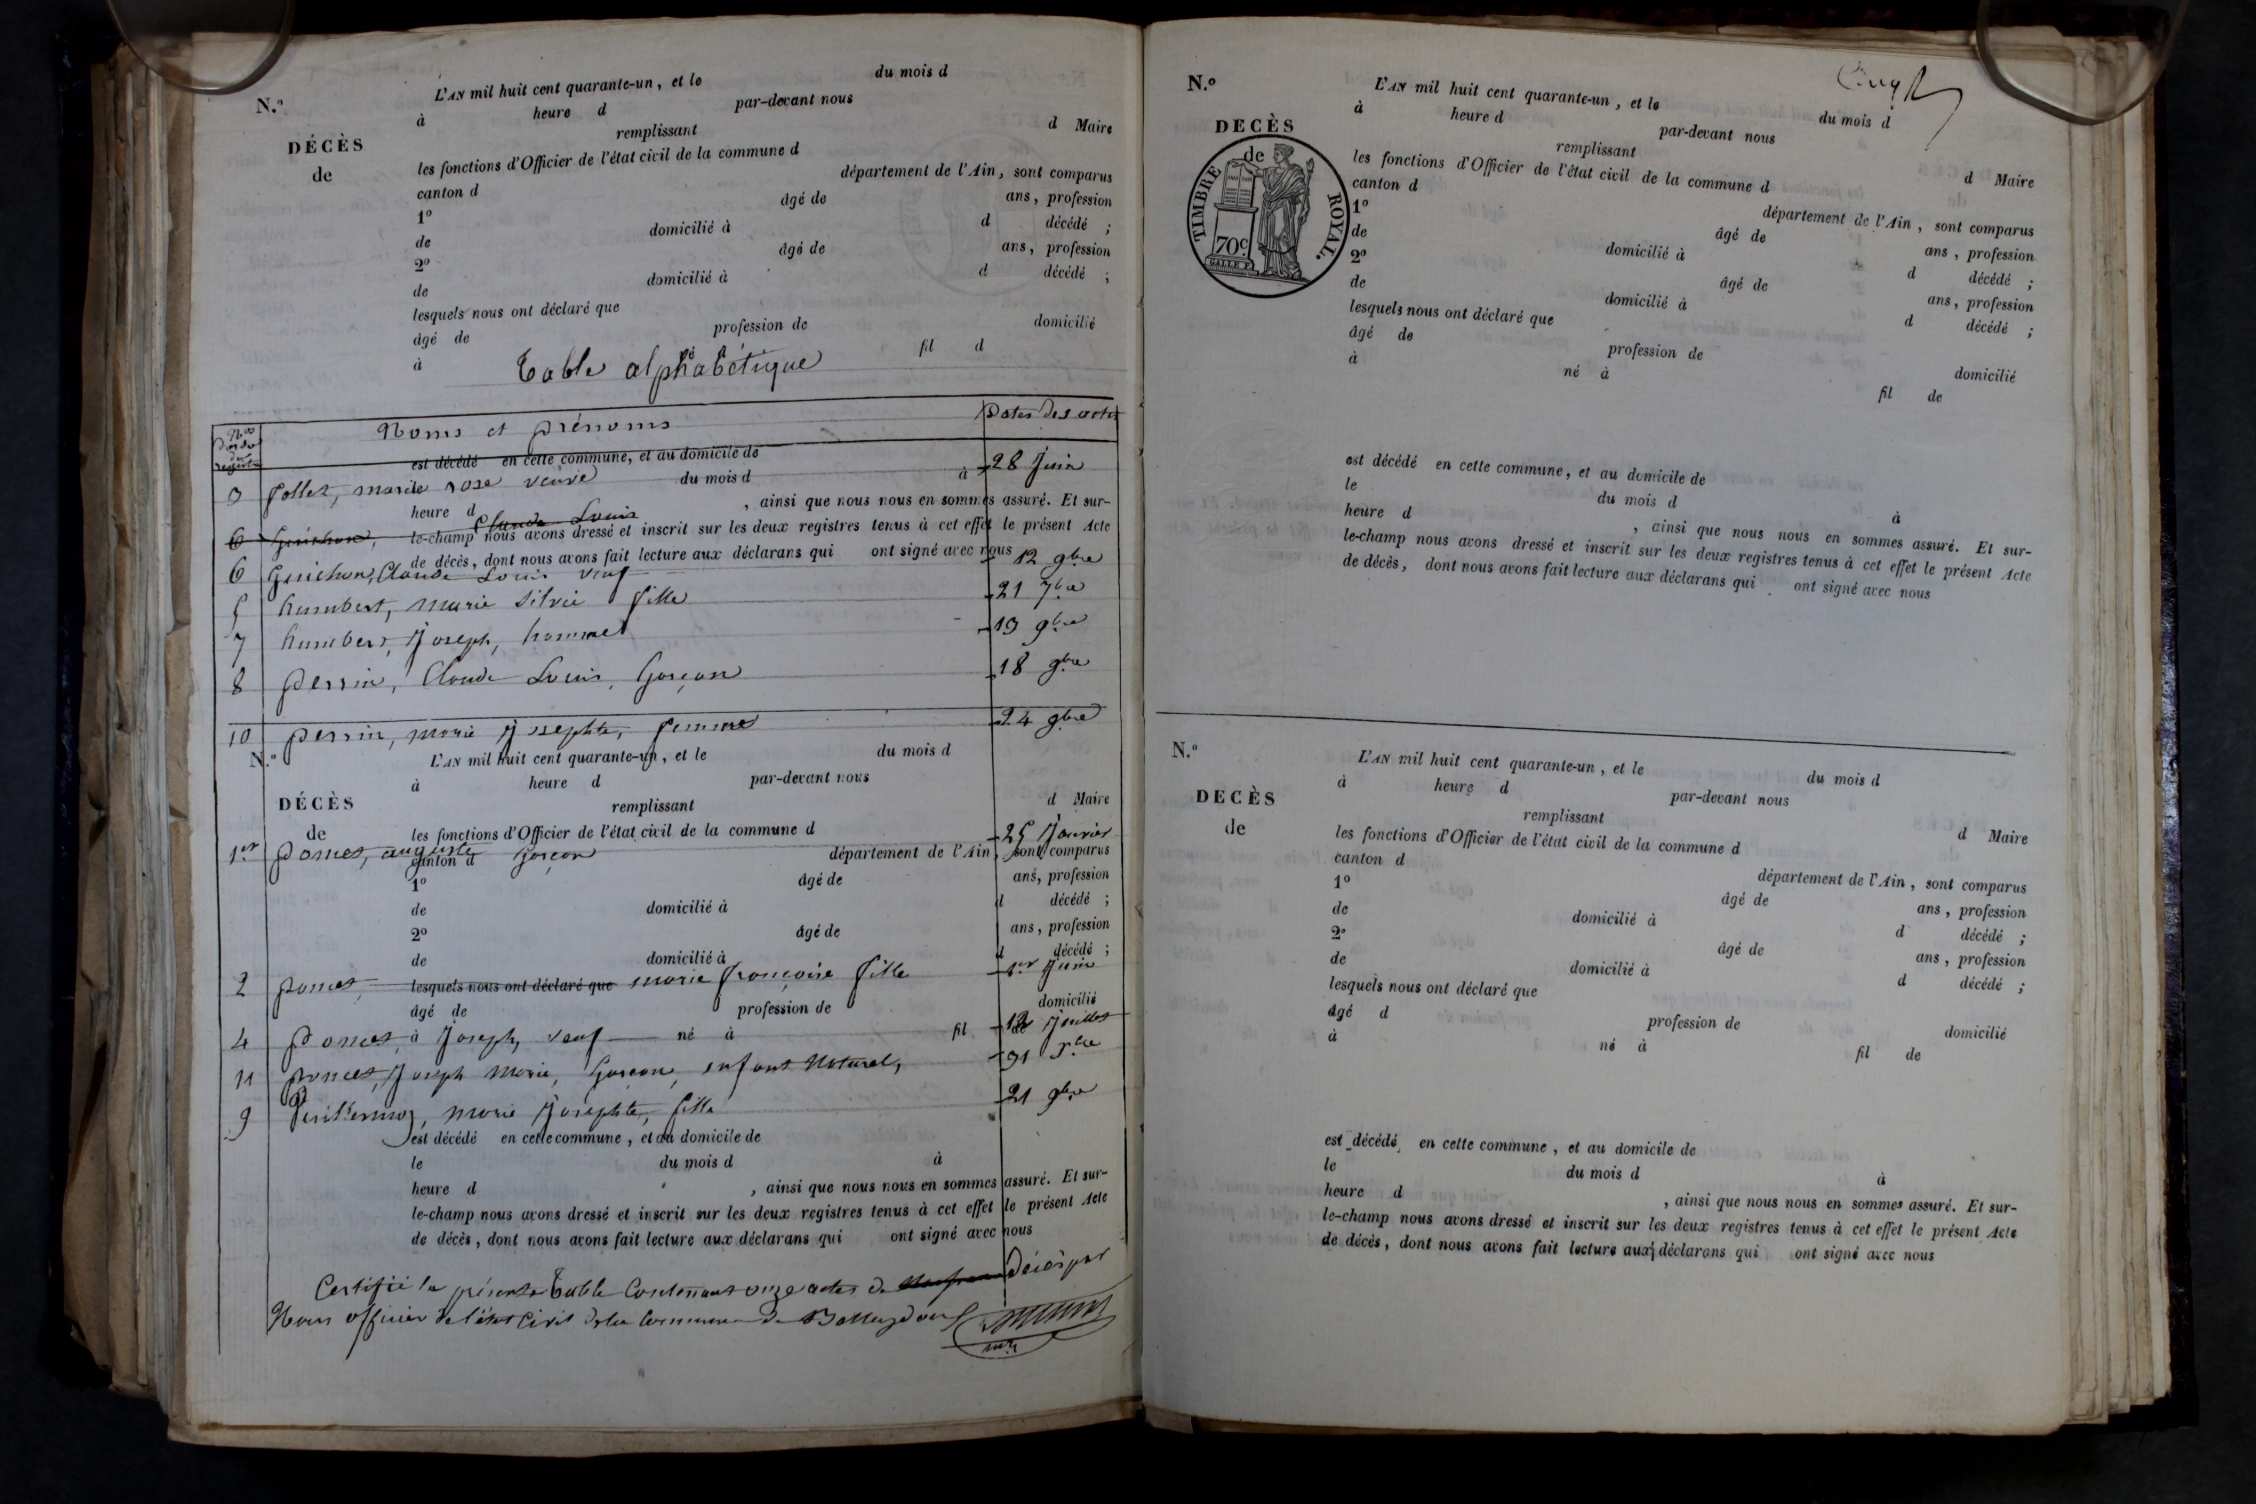 N.º
L'AN mil huit cent quarante-un, et le du mois d
à heure d par-devant nous
DÉCÈS
remplissant d Maire
de
les fonctions d'Officier de l'état civil de la commune d
canton d département de l'Ain, sont comparus
1º âgé de ans, profession
de domicilié à d décédé ;
2º âgé de ans, profession
de domicilié à d décédé ;
lesquels nous ont déclaré que
âgé de profession de domicilié
à fil d
Table alphabétique
Nos d'ordre du registre Noms et prénoms Dates des actes
est décédé en cette commune, et au domicile de
3 Pollet, marie rose veuve 28 Juin
le du mois d à
heure d , ainsi que nous nous en sommes assuré. Et sur-
6 Guichon, Claude Louis
le-champ nous avons dressé et inscrit sur les deux registres tenus à cet effet le présent Acte
de décès, dont nous avons fait lecture aux déclarans qui ont signé avec nous
6 Guichon, Claude Louis veuf 12 9bre
5 humbert, Marie Silvie fille 21 7bre
7 humbert, Joseph, homme 13 9bre
8 perrin, Claude Louis, Garçon 18 9bre
10 perrin, marie Josephte, femme 24 9bre
N.º
L'AN mil huit cent quarante-un, et le du mois d
à heure d par-devant nous
DÉCÈS
remplissant d Maire
de
les fonctions d'Officier de l'état civil de la commune d
1er poncet, auguste Garçon 25 Janvier
canton d département de l'Ain, sont comparus
1º âgé de ans, profession
de domicilié à d décédé ;
2º âgé de ans, profession
de domicilié à d décédé ;
2 poncet, marie françoise fille 1er Juin
lesquels nous ont déclaré que
âgé de profession de domicilié
4 poncet, Joseph, veuf 12 Juillet
à né à fil de
11 poncet, Joseph Marie, Garçon, enfant Naturel, 31 Xbre
9 marie Josephte, fille 21 9bre
est décédé en cette commune, et au domicile de
le du mois d à
heure d , ainsi que nous nous en sommes assuré. Et sur-
le-champ nous avons dressé et inscrit sur les deux registres tenus à cet effet le présent Acte
de décès, dont nous avons fait lecture aux déclarans qui ont signé avec nous
Certifié la présente Table Contenant onze actes de décès par
Nous officier de l'état Civil de la Commune de
N.º
L'AN mil huit cent quarante-un, et le du mois d
à heure d par-devant nous
DECÈS
remplissant d Maire
de
TIMBRE ROYAL.
70 c.
les fonctions d'Officier de l'état civil de la commune d
canton d département de l'Ain, sont comparus
1º âgé de ans, profession
de domicilié à d décédé ;
2º âgé de ans, profession
de domicilié à d décédé ;
lesquels nous ont déclaré que
âgé de profession de domicilié
à né à fil de
est décédé en cette commune, et au domicile de
le du mois d à
heure d , ainsi que nous nous en sommes assuré. Et sur-
le-champ nous avons dressé et inscrit sur les deux registres tenus à cet effet le présent Acte
de décès, dont nous avons fait lecture aux déclarans qui ont signé avec nous
N.º
L'AN mil huit cent quarante-un, et le du mois d
à heure d par-devant nous
DECÈS
remplissant d Maire
de
les fonctions d'Officier de l'état civil de la commune d
canton d département de l'Ain, sont comparus
1º âgé de ans, profession
de domicilié à d décédé ;
2º âgé de ans, profession
de domicilié à d décédé ;
lesquels nous ont déclaré que
âgé d profession de domicilié
à né à fil de
est décédé en cette commune, et au domicile de
le du mois d à
heure d , ainsi que nous nous en sommes assuré. Et sur-
le-champ nous avons dressé et inscrit sur les deux registres tenus à cet effet le présent Acte
de décès, dont nous avons fait lecture aux déclarans qui ont signé avec nous